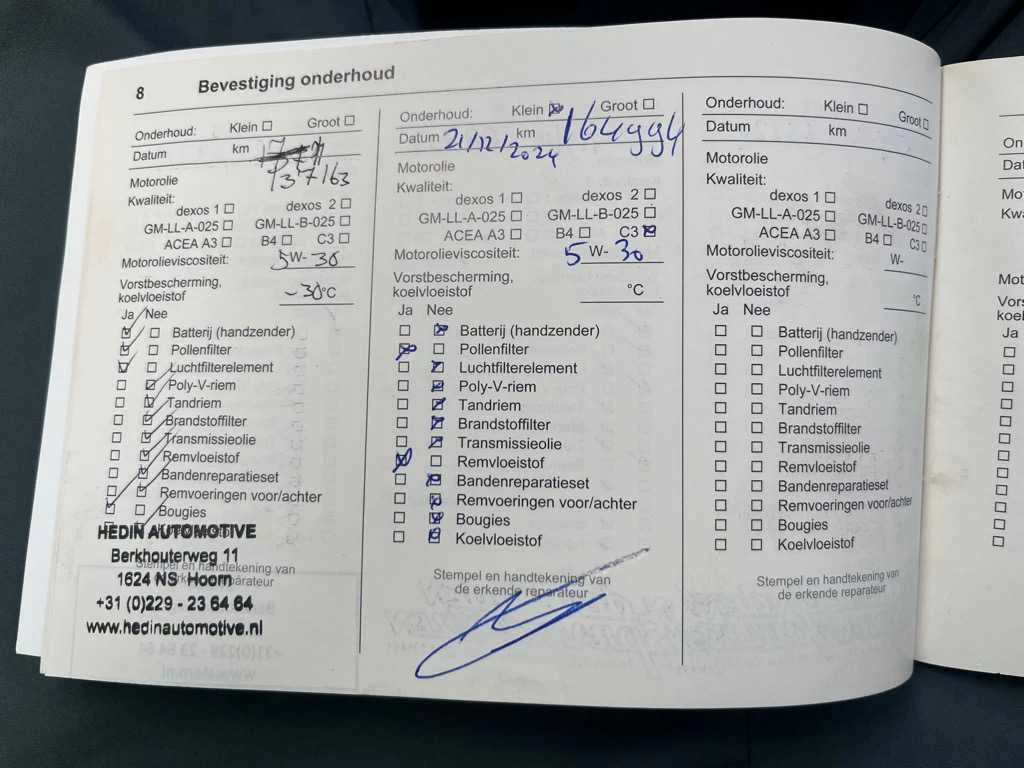 8 Bevestiging onderhoud
Onderhoud: Klein Groot
Datum km
137163
Motorolie
Kwaliteit:
dexos 1 dexos 2
GM-LL-A-025 GM-LL-B-025
ACEA A3 B4 C3
Motorolieviscositeit: 5W-30
Vorstbescherming,
koelvloeistof -30°C
Ja Nee
Batterij (handzender)
Pollenfilter
Luchtfilterelement
Poly-V-riem
Tandriem
Brandstoffilter
Transmissieolie
Remvloeistof
Bandenreparatieset
Remvoeringen voor/achter
Bougies
HEDIN AUTOMOTIVE
Berkhouterweg 11
Stempel en handtekening van
1624 NS Hoorn
reparateur
+31 (0)229 - 23 64 64
www.hedinautomotive.nl
Onderhoud: Klein Groot
Datum 21/12/2024 km 164994
Motorolie
Kwaliteit:
dexos 1 dexos 2
GM-LL-A-025 GM-LL-B-025
ACEA A3 B4 C3
Motorolieviscositeit: 5W-30
Vorstbescherming,
koelvloeistof °C
Ja Nee
Batterij (handzender)
Pollenfilter
Luchtfilterelement
Poly-V-riem
Tandriem
Brandstoffilter
Transmissieolie
Remvloeistof
Bandenreparatieset
Remvoeringen voor/achter
Bougies
Koelvloeistof
Stempel en handtekening van
de erkende reparateur
Onderhoud: Klein Groot
Datum km
Motorolie
Kwaliteit:
dexos 1 dexos 2
GM-LL-A-025 GM-LL-B-025
ACEA A3 B4 C3
Motorolieviscositeit: W-
Vorstbescherming,
koelvloeistof °C
Ja Nee
Batterij (handzender)
Pollenfilter
Luchtfilterelement
Poly-V-riem
Tandriem
Brandstoffilter
Transmissieolie
Remvloeistof
Bandenreparatieset
Remvoeringen voor/achter
Bougies
Koelvloeistof
Stempel en handtekening van
de erkende reparateur
Ja